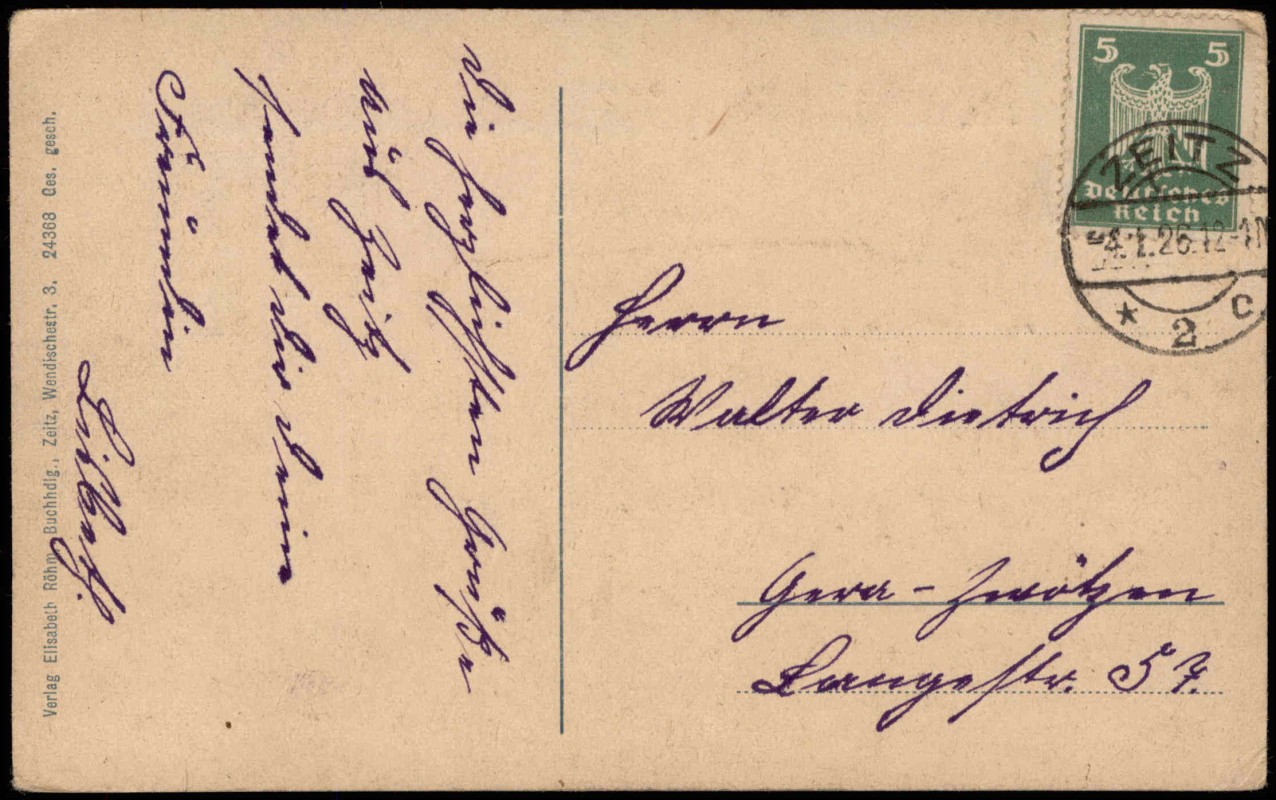 Die herzlichsten Grüße
aus Zeitz
sendet dir deine
Freundin
Lisbeth.
Verlag Elisabeth Röhm, Buchhdlg., Zeitz, Wendischestr. 3. 24368 Ges. gesch.
5 5
Deutsches
Reich
ZEITZ
4.1.26.12-1N
* 2 c
Herrn
Walter Dietrich
Gera-Zwötzen
Langestr. 57.